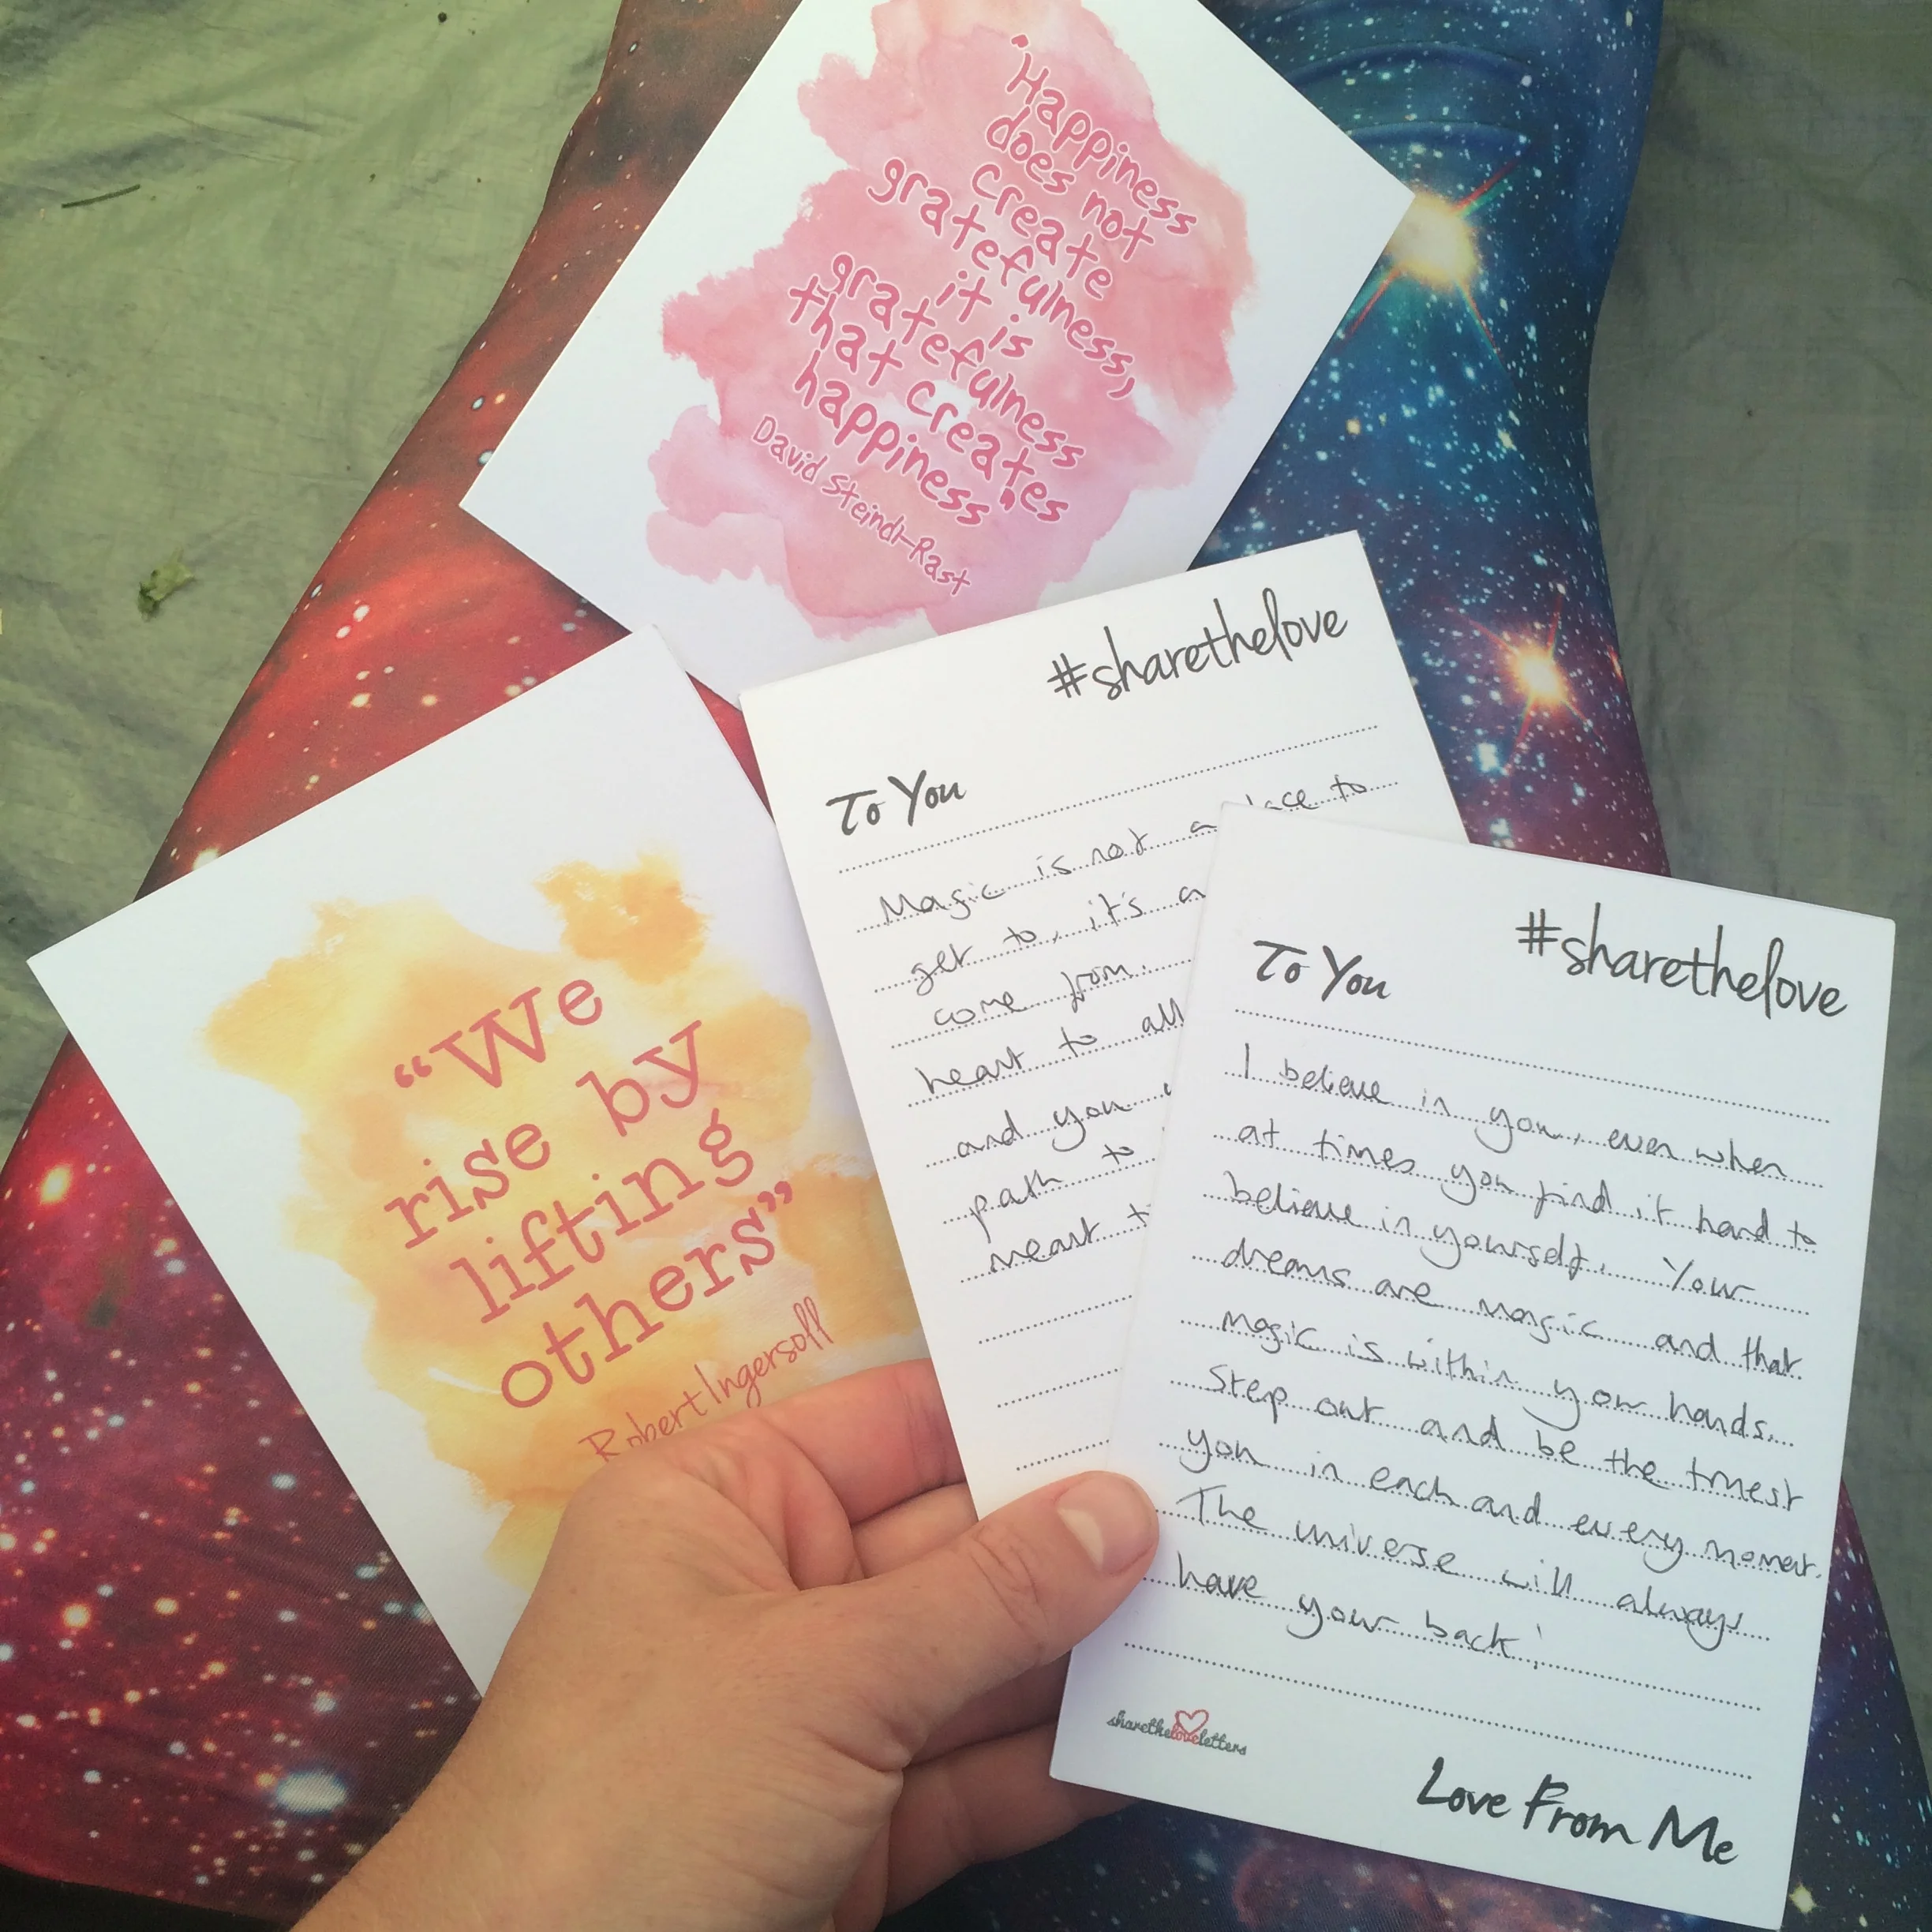 "Happiness
does not
create
gratefulness,
it is
gratefulness
that creates
happiness"
David Steindl-Rast
"We
rise by
lifting
others"
Robert Ingersoll
#sharethelove
To You
Magic is not a
to
get to, it's a
come from.
heart to all
and you
path to
meant
#sharethelove
To You
I believe in you, even when
at times you find it hard to
believe in yourself. Your
dreams are magic and that
magic is within your hands.
Step out and be the truest
you in each and every moment.
The universe will always
have your back!
sharetheloveletters
Love From Me